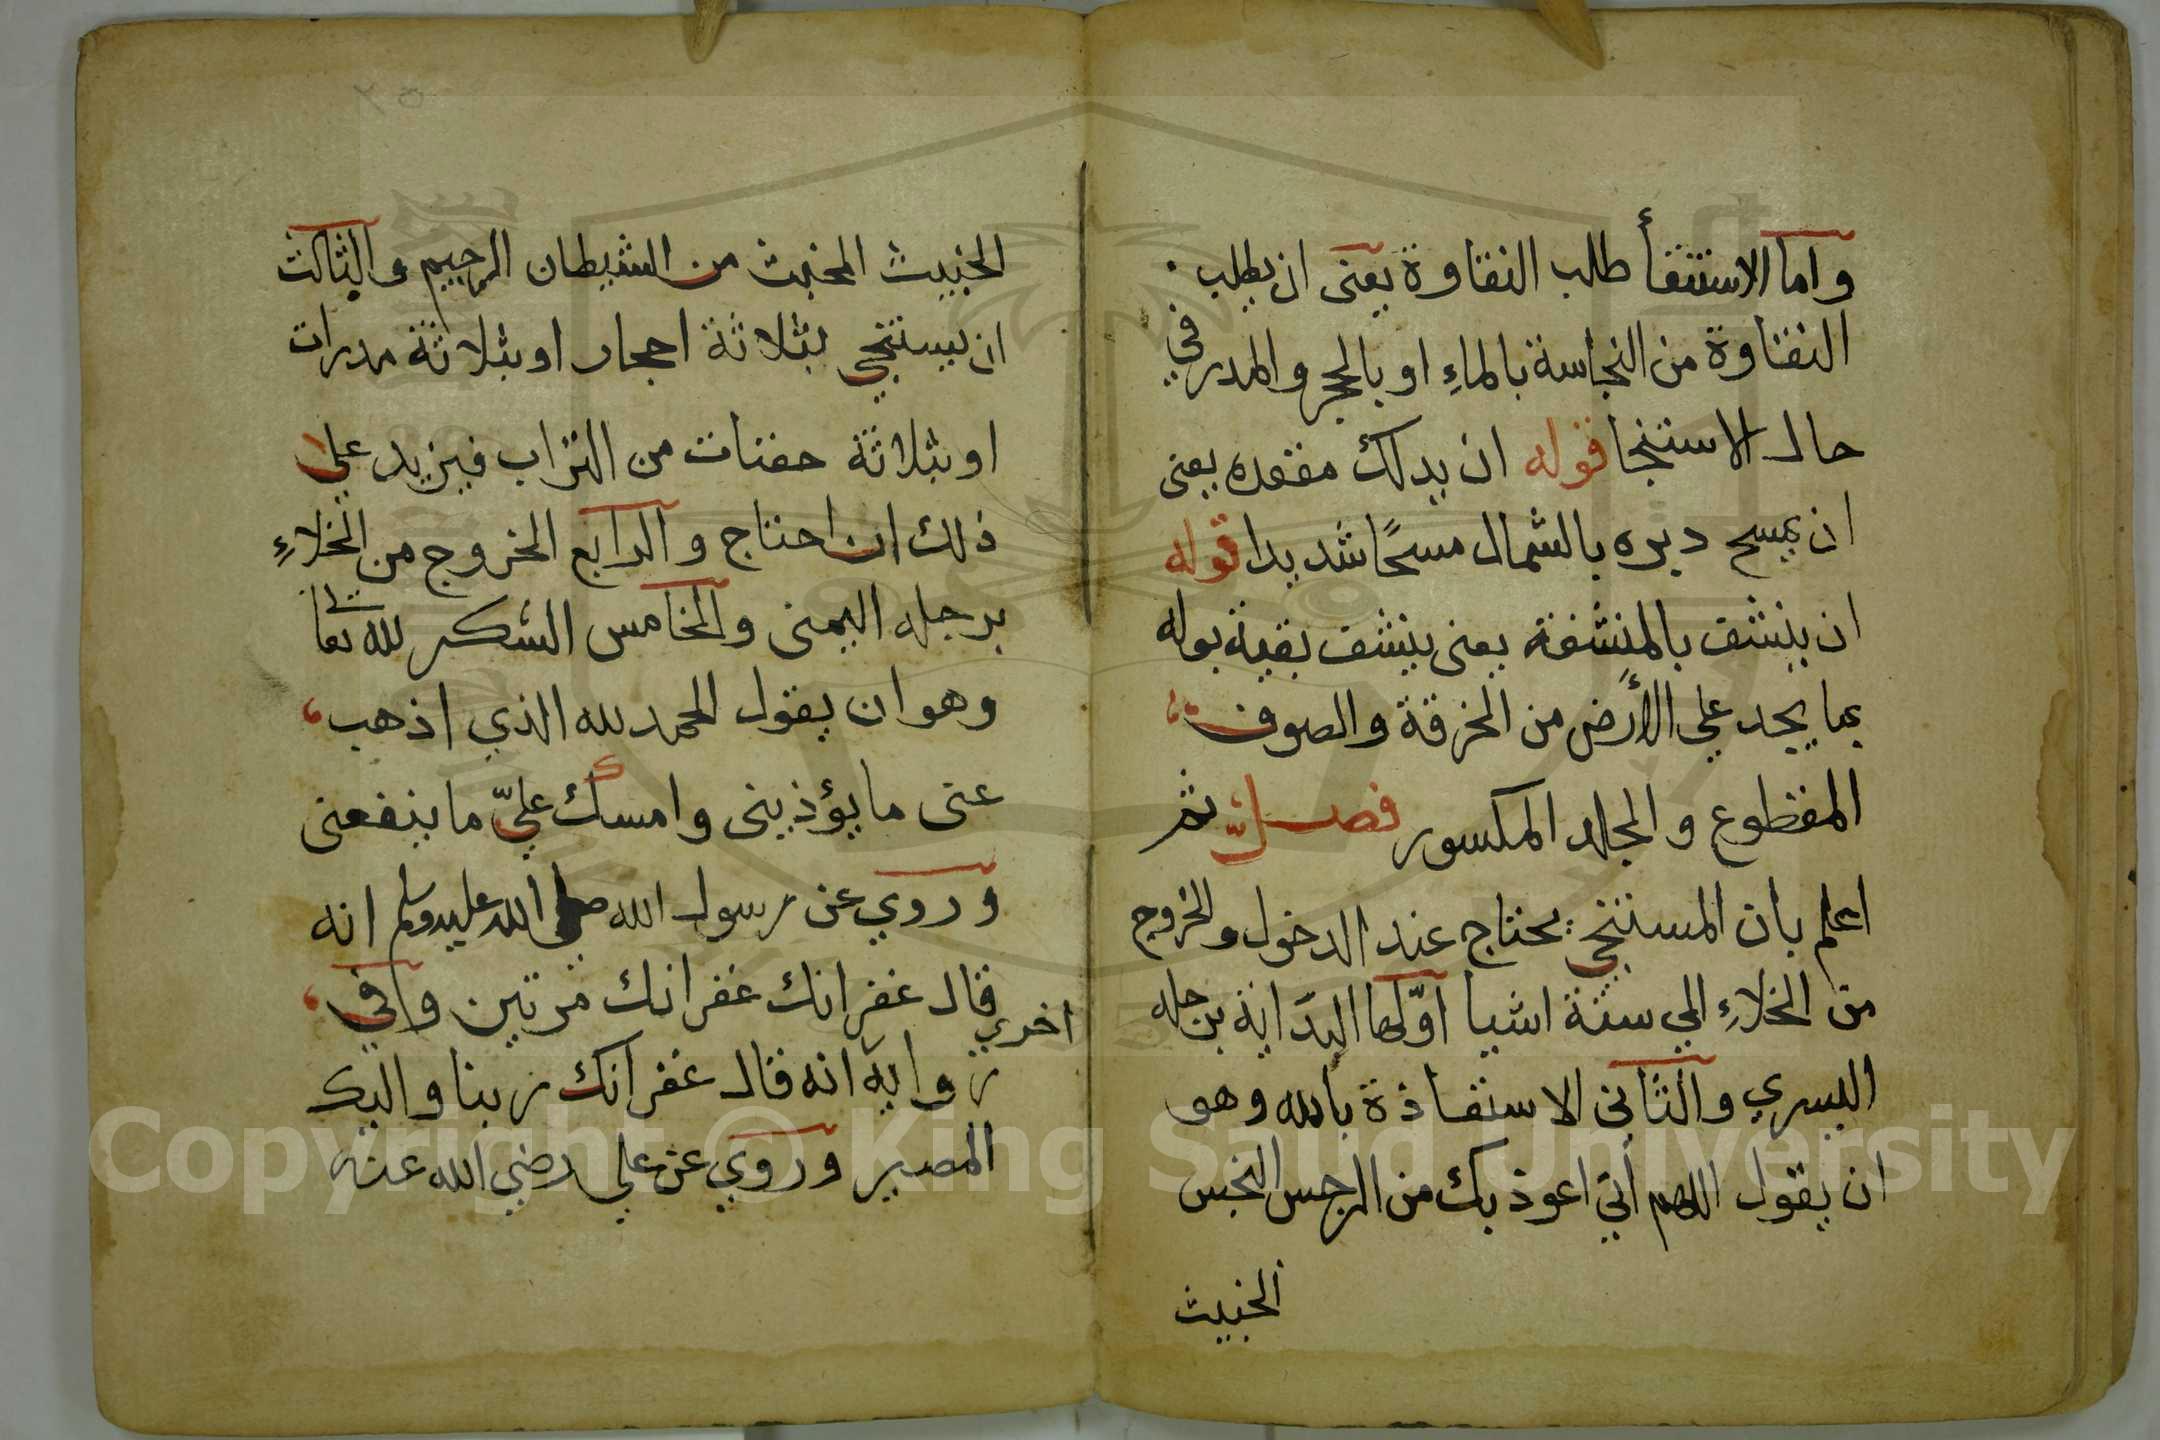 واما الاستنقأ طلب النقاوة يعنى ان يطلب
النقاوة من النجاسة بالماءِ او بالحجر والمدر في
حال الاستنجا قوله ان يدلك مقعده يعنى
ان يمسح دبره بالشمال مسحًا شديدا قوله
ان ينشف بالمنشفة يعنى ينشف بقية بوله
بما يجد علي الأرض من الخرقة والصوف
المقطوع والجلد المكسور فصل ثم
اعلم بان المستنجي يحتاج عند الدخول والخروج
من الخلاءِ الي ستة اشيا اوّلها البداية برجله
اليسري والثاني الاستعاذة بالله وهو
ان يقول اللهم اني اعوذ بك من الرجس النجس
الخبيث
الخبيث المخبث من الشيطان الرجيم والثالث
ان يستنجي بثلاثة احجار او بثلاثة مدرات
او بثلاثة حفنات من التراب فيزيد علي
ذلك ان احتاج والرابع الخروج من الخلاءِ
برجله اليمنى والخامس الشكر لله تعا
وهو ان يقول الحمد لله الذي اذهب
عنى ما يؤذينى وامسك عليّ ما ينفعنى
وروي عن رسول الله صلي الله عليه وسلم انه
قال غفرانك غفرانك مرتين وفي
اخري
رواية انه قال غفرانك ربنا واليك
المصير وروي عن علي رضي الله عنه
Copyright © King Saud University